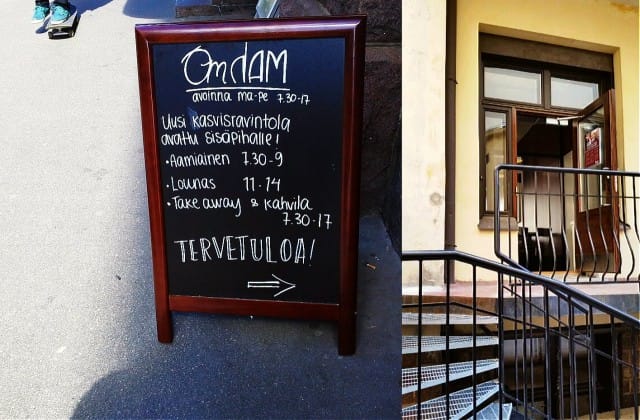 OmdAM
avoinna ma-pe 7.30-17
Uusi kasvisravintola
avattu sisäpihalle!
• Aamiainen 7.30-9
• Lounas 11-14
• Take away & kahvila
7.30-17
TERVETULOA!